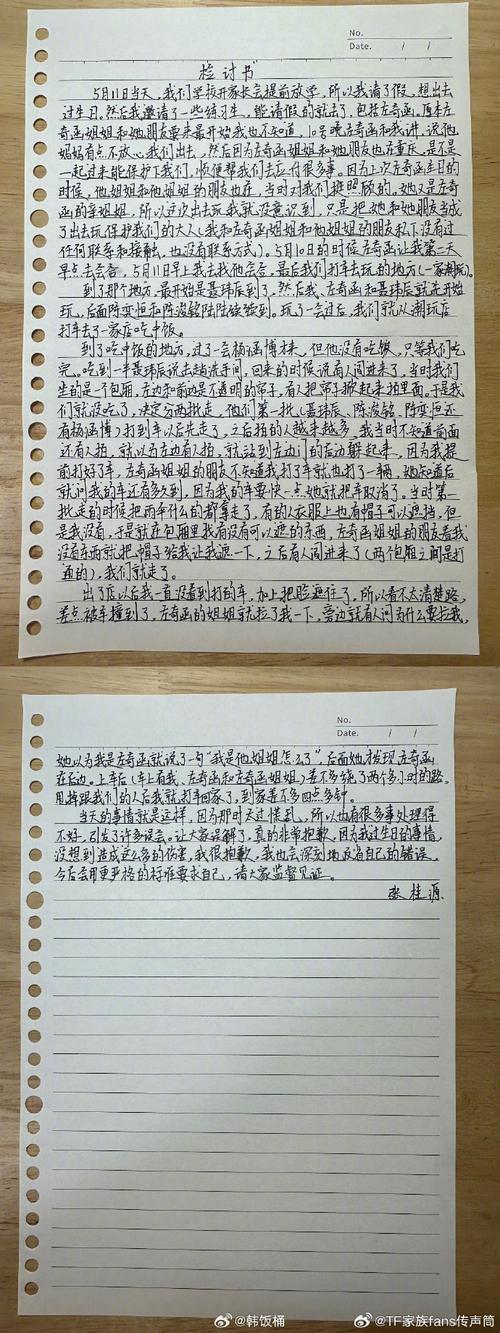 No.
Date. / /
检讨书
5月11日当天，我们学校开家长会提前放学，所以我请了假，想出去
过生日。然后我邀请了一些练习生，能请假的就去了，包括左奇函。原本左
奇函姐姐和她朋友要来最开始我也不知道，10号晚左奇函和我讲，说他
妈妈有点不放心我们出去，然后因为左奇函姐姐和她朋友也在重庆，是不是
一起过来能保护下我们，顺便帮我们去应付很多事，因为上次左奇函生日的
时候，他姐姐和他姐姐的朋友也在，当时对我们挺照顾的，她又是左奇
函的亲姐姐，所以这次出去玩我就没意识到，只是把她和她朋友当成
了出去玩保护我们的大人（我和左奇函姐姐和他姐姐的朋友私下没有过
任何联系和接触，也没有联系方式）。5月10日的时候左奇函让我第二天
早点去会合，5月11日早上我去找他会合，最后我们打车去玩的地方（一家潮玩店）。
到了那个地方，最开始是聂玮辰到了，然后我、左奇函和聂玮辰就先开始
玩，后面陈奕恒和陈浚铭陆陆续续到。玩了一会过后，我们就从潮玩店
打车去了一家店吃中饭。
到了吃中饭的地方，过了一会杨涵博才来，但他没有吃饭，只等我们吃
完。吃到一半聂玮辰说出去趟洗手间，回来的时候说有人闯进来了，当时我们
坐的是个包厢，左边和前边是不透明的帘子，有人把帘子掀起来拍里面。于是我
们就没吃了，决定分两批走，他们第一批（聂玮辰、陈浚铭、陈奕恒还
有杨涵博）打到车以后先走了，之后拍的人越来越多，我当时不知道前面
还有人拍，就以为左边有人拍，就站到左边门的后边躲起来，因为我提
前打好了车，左奇函姐姐的朋友不知道我打了车就也打了一辆，她知道后
就问我的车还有多久到，因为我的车要快一点她就把车取消了，当时第一
批走的时候把雨伞什么的都拿走了，有的人衣服上也有帽子可以遮挡，但
是我没有，于是就在包厢里找有没有可以遮的东西，左奇函姐姐的朋友看我
没有东西就把帽子给我让我遮一下，之后有人闯进来了（两个包厢之间是打
通的），我们就走了。
出了店以后我一直没看到打的车，加上把脸遮住了，所以看不太清楚路，
差点被车撞到了，左奇函的姐姐就拉了我一下，旁边就有人问为什么要拉我，
No.
Date. / /
她以为我是左奇函就说了一句“我是他姐姐怎么了”，后面她才发现左奇函
在后边。上车后（车上有我、左奇函和左奇函姐姐）差不多绕了两个多小时的路，
甩掉跟我们的人后我就打车回家了，到家差不多四点多钟。
当天的事情就是这样，因为那时太慌乱，所以也有很多事处理得
不好，引发了许多误会。让大家误解了，真的非常抱歉，因为我过生日的事情，
没想到造成这么多的伤害，我很抱歉，我也会深刻地反省自己的错误，
今后会用更严格的标准要求自己，请大家监督见证。
张桂源
@韩饭桶
@TF家族fans传声筒